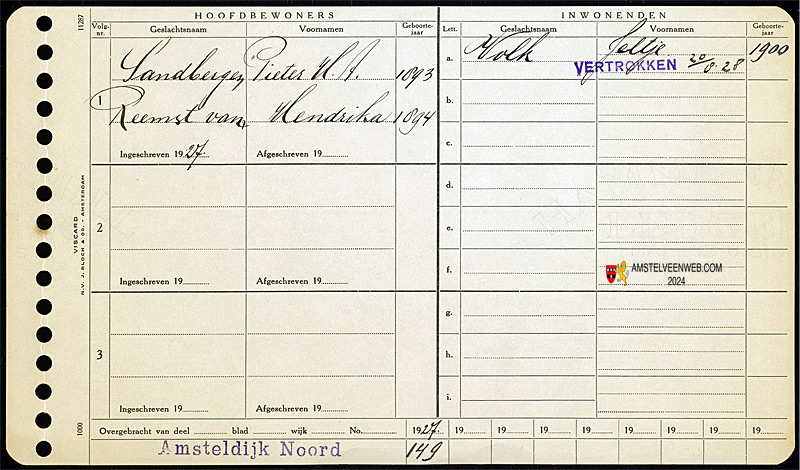 HOOFDBEWONERS
INWONENDEN
Volg-nr. Geslachtsnaam Voornamen Geboorte-jaar
Lett. Geslachtsnaam Voornamen Geboorte-jaar
11287
1 Sandbergen, Pieter H. J. 1893
Reemst van, Hendrika 1894
Ingeschreven 1927. Afgeschreven 19
2
Ingeschreven 19 Afgeschreven 19
3
Ingeschreven 19 Afgeschreven 19
a. Volk Jeltje 1900
VERTROKKEN 20/8.28
b.
c.
d.
e.
f.
AMSTELVEENWEB.COM
2024
g.
h.
i.
VISCARD
N.V. J. BLOCH & CO. - AMSTERDAM
1000
Overgebracht van deel blad wijk No. 1927. 19 19 19 19 19 19 19 19
Amsteldijk Noord 149